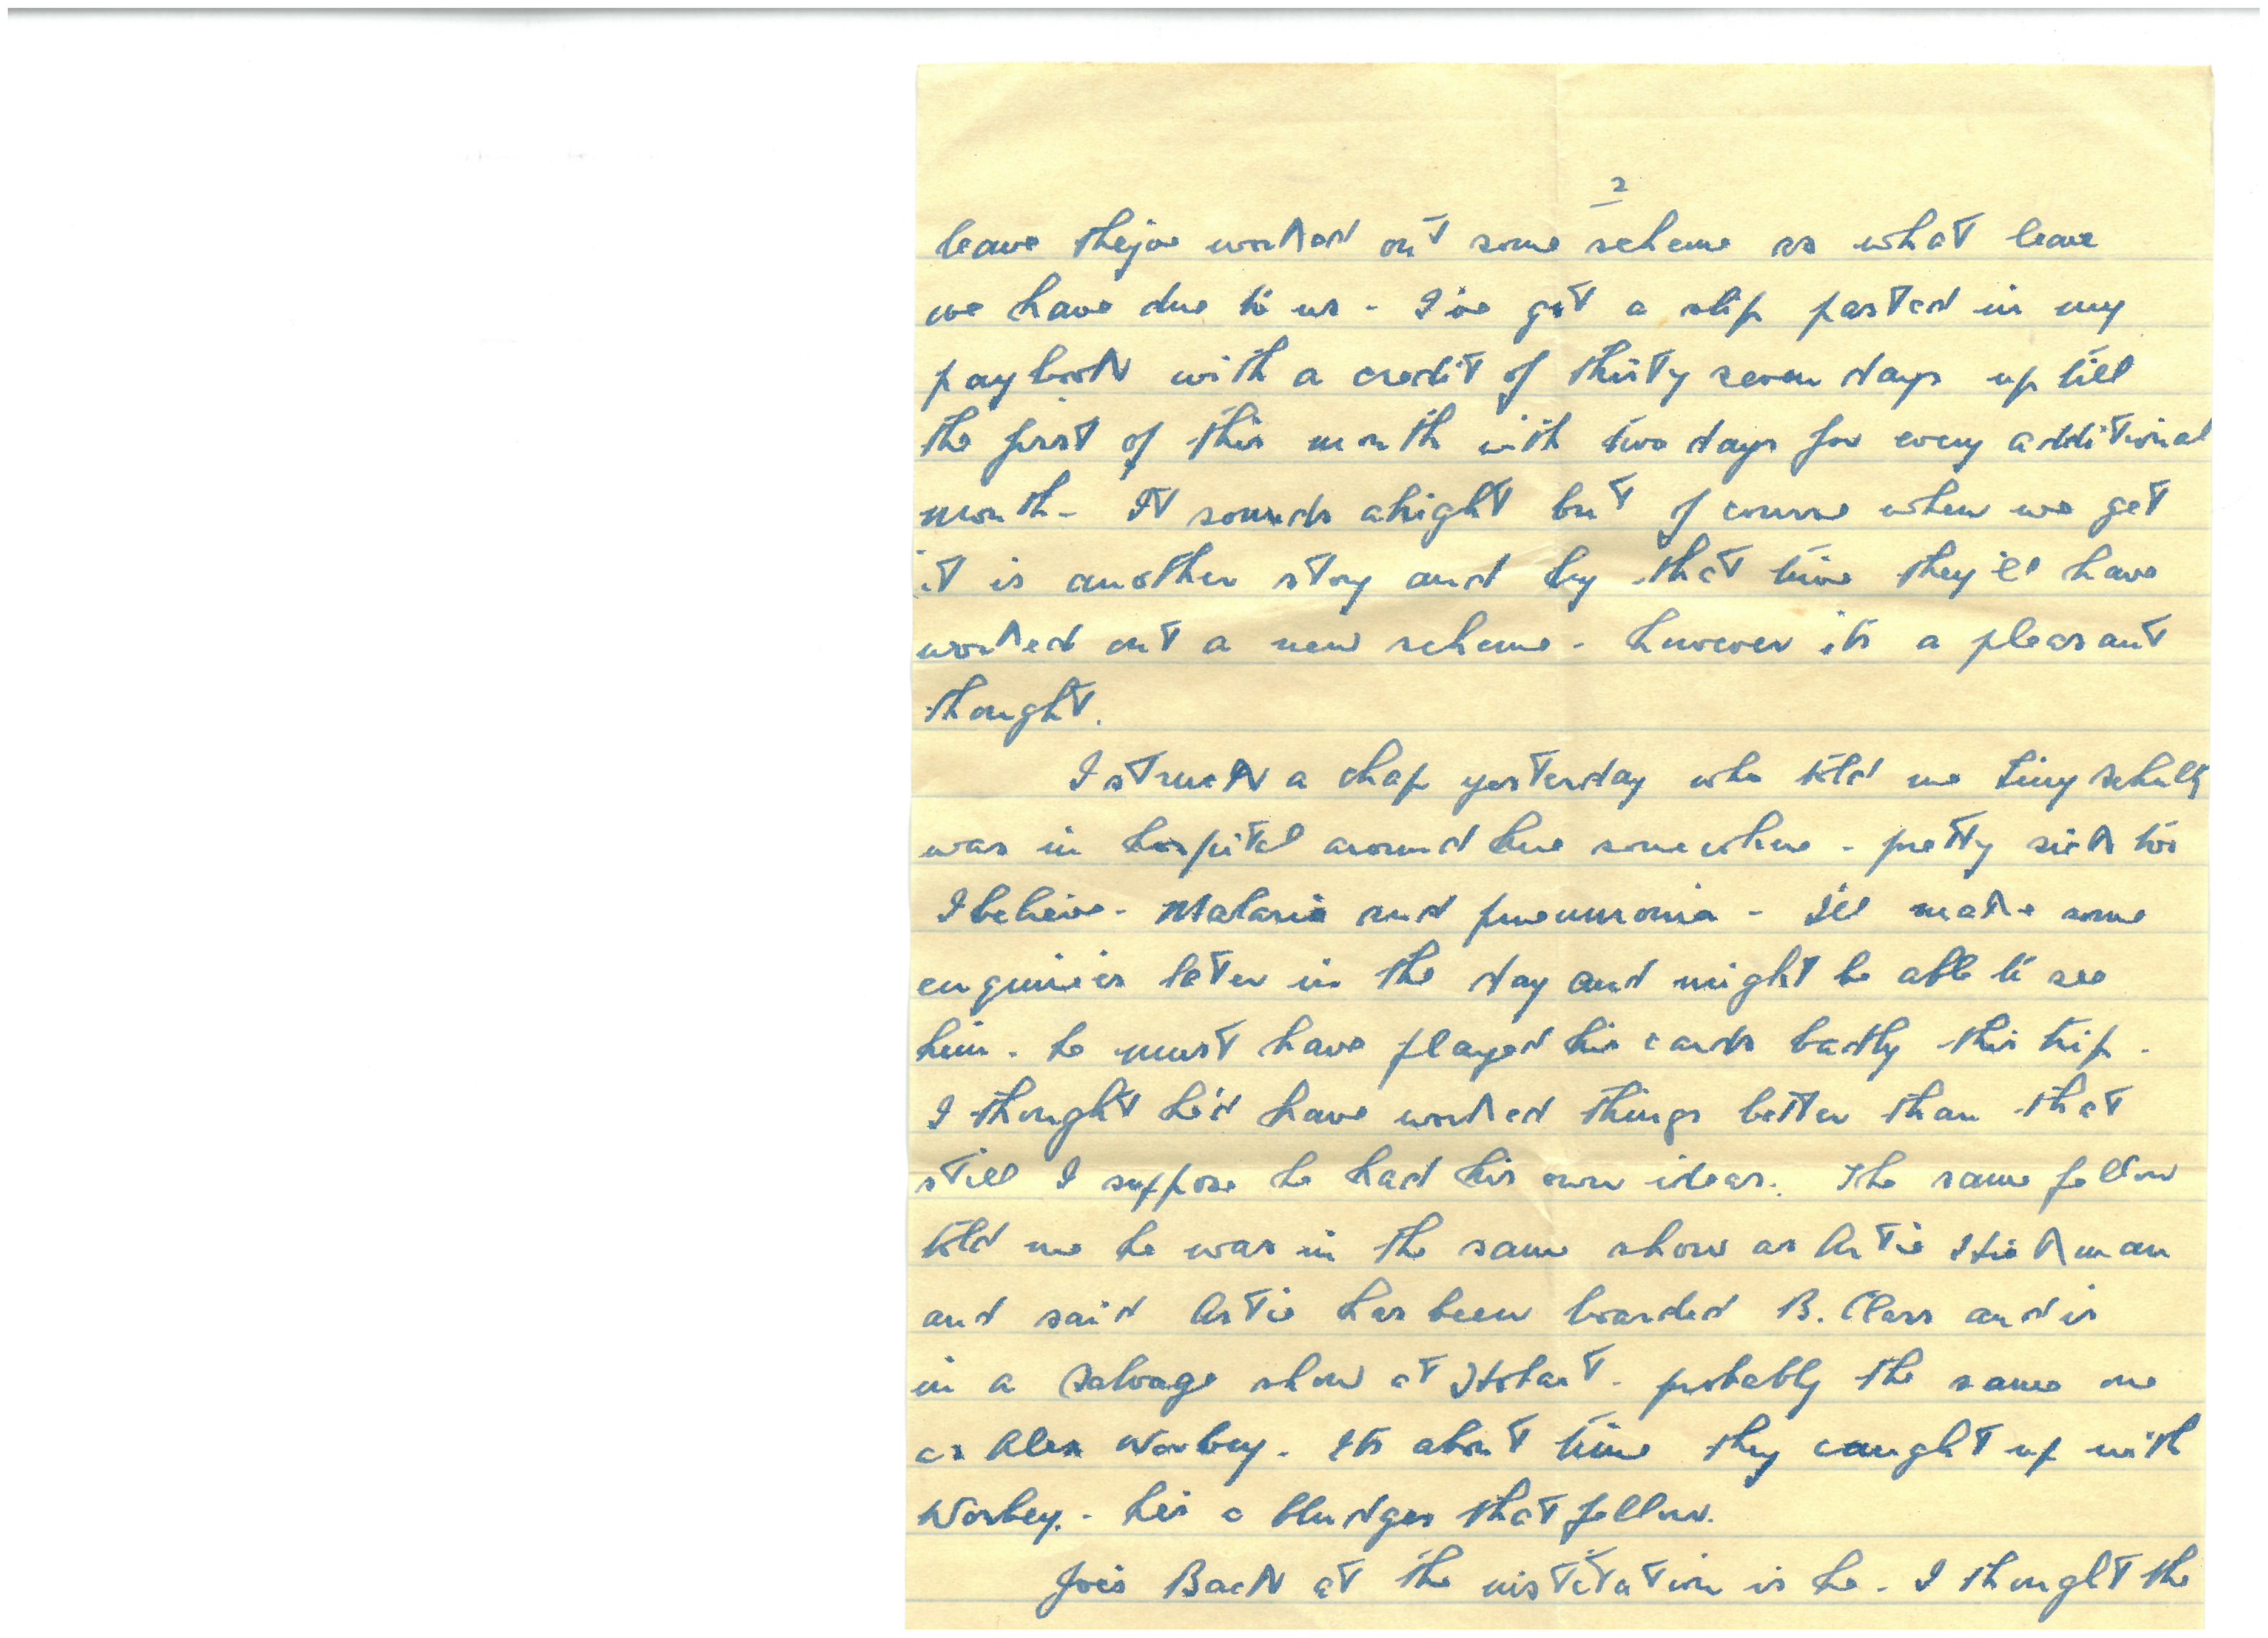 2
leave they've worked out some scheme as what leave
we have due to us - I've got a slip pasted in my
paybook with a credit of thirty seven days up till
the first of this month with two days for every additional
month - It sounds alright but of course when we get
it is another story and by that time they'll have
worked out a new scheme - however its a pleasant
thought.
I struck a chap yesterday who told me Tiny Schultz
was in hospital around here somewhere - pretty sick too
I believe - Malaria and pneumonia - I'll make some
enquiries later in the day and might be able to see
him - he must have played his cards badly this trip.
I thought he'd have worked things better than that
still I suppose he had his own ideas. The same fellow
told me he was in the same show as Artie Hickman
and said Artie has been boarded B. Class and is
in a Salvage show at Hobart - probably the same one
as Alex Worbey. Its about time they caught up with
Worbey. - he's a bludger that fellow.
Joe's Back at the institution is he - I thought the